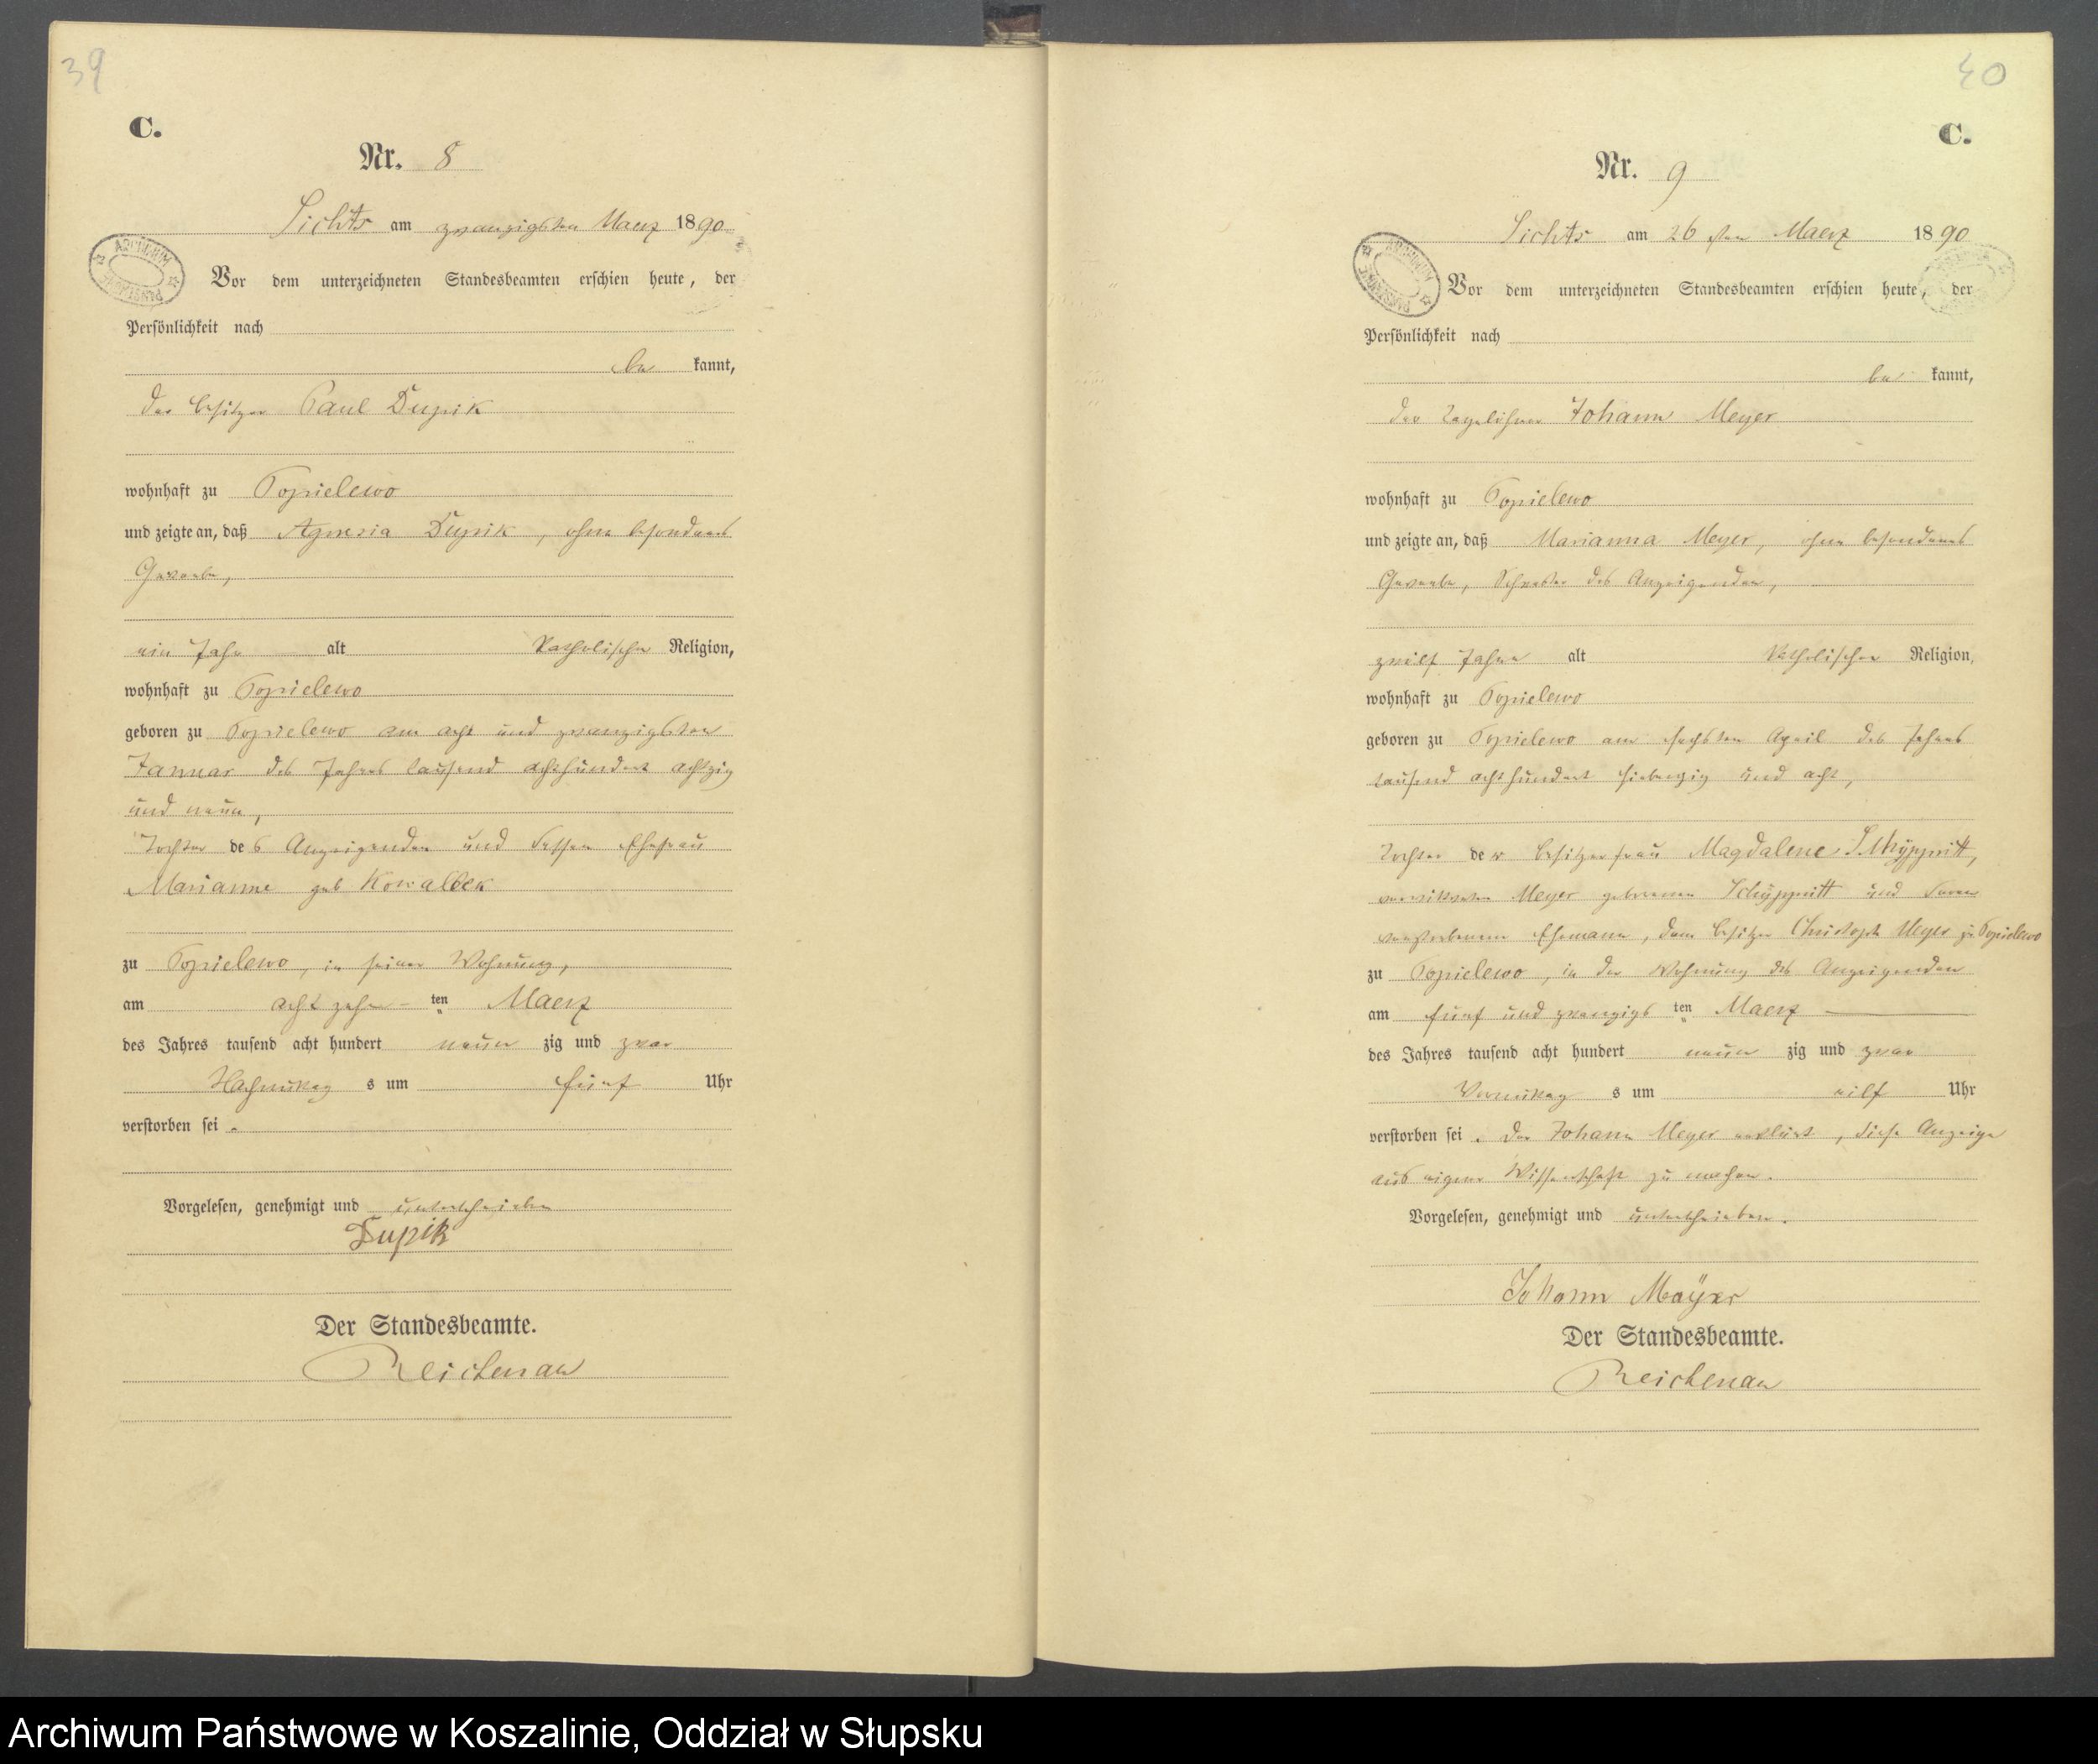 39
C.
Nr. 8
Lichts am zwanzigsten Maerz 1890
ARCHIWUM PAŃSTWOWE
Vor dem unterzeichneten Standesbeamten erschien heute, der
Persönlichkeit nach
be kannt,
der Besitzer Paul Dupik
wohnhaft zu Popielewo
und zeigte an, daß Agnesia Dupik, ohne besonderes
Gewerbe,
ein Jahr alt Katholischer Religion,
wohnhaft zu Popielewo
geboren zu Popielewo am acht und zwanzigsten
Januar des Jahres tausend achthundert achtzig
und neun,
Tochter des Anzeigenden und dessen Ehefrau
Marianne geb Kowalbek
zu Popielewo, in seiner Wohnung,
am acht zehn ten Maerz
des Jahres tausend acht hundert neun zig und zwar
Nachmittag s um fünf Uhr
verstorben sei.
Vorgelesen, genehmigt und unterschrieben
Dupik
Der Standesbeamte.
Reichenau
40
C.
Nr. 9
Lichts am 26 sten Maerz 1890
ARCHIWUM PAŃSTWOWE
Vor dem unterzeichneten Standesbeamten erschien heute, der
Persönlichkeit nach
be kannt,
der Tagelöhner Johann Meyer
wohnhaft zu Popielewo
und zeigte an, daß Marianna Meyer, ohne besonderes
Gewerbe, Schwester des Anzeigenden,
zwölf Jahre alt Katholischer Religion,
wohnhaft zu Popielewo
geboren zu Popielewo am sechsten April des Jahres
tausend achthundert siebenzig und acht,
Tochter der Besitzerfrau Magdalene
verwittweten Meyer geborenen Schüppritt und deren
verstorbenem Ehemann, dem Besitzer Christoph Meyer zu Popielewo
zu Popielewo, in der Wohnung des Anzeigenden
am fünf und zwanzigs ten Maerz
des Jahres tausend acht hundert neun zig und zwar
Vormittag s um elf Uhr
verstorben sei. Der Johann Meyer erklärt, diese Anzeige
aus eigener Wissenschaft zu machen.
Vorgelesen, genehmigt und unterschrieben.
Johann Mäÿer
Der Standesbeamte.
Reichenau
Archiwum Państwowe w Koszalinie, Oddział w Słupsku